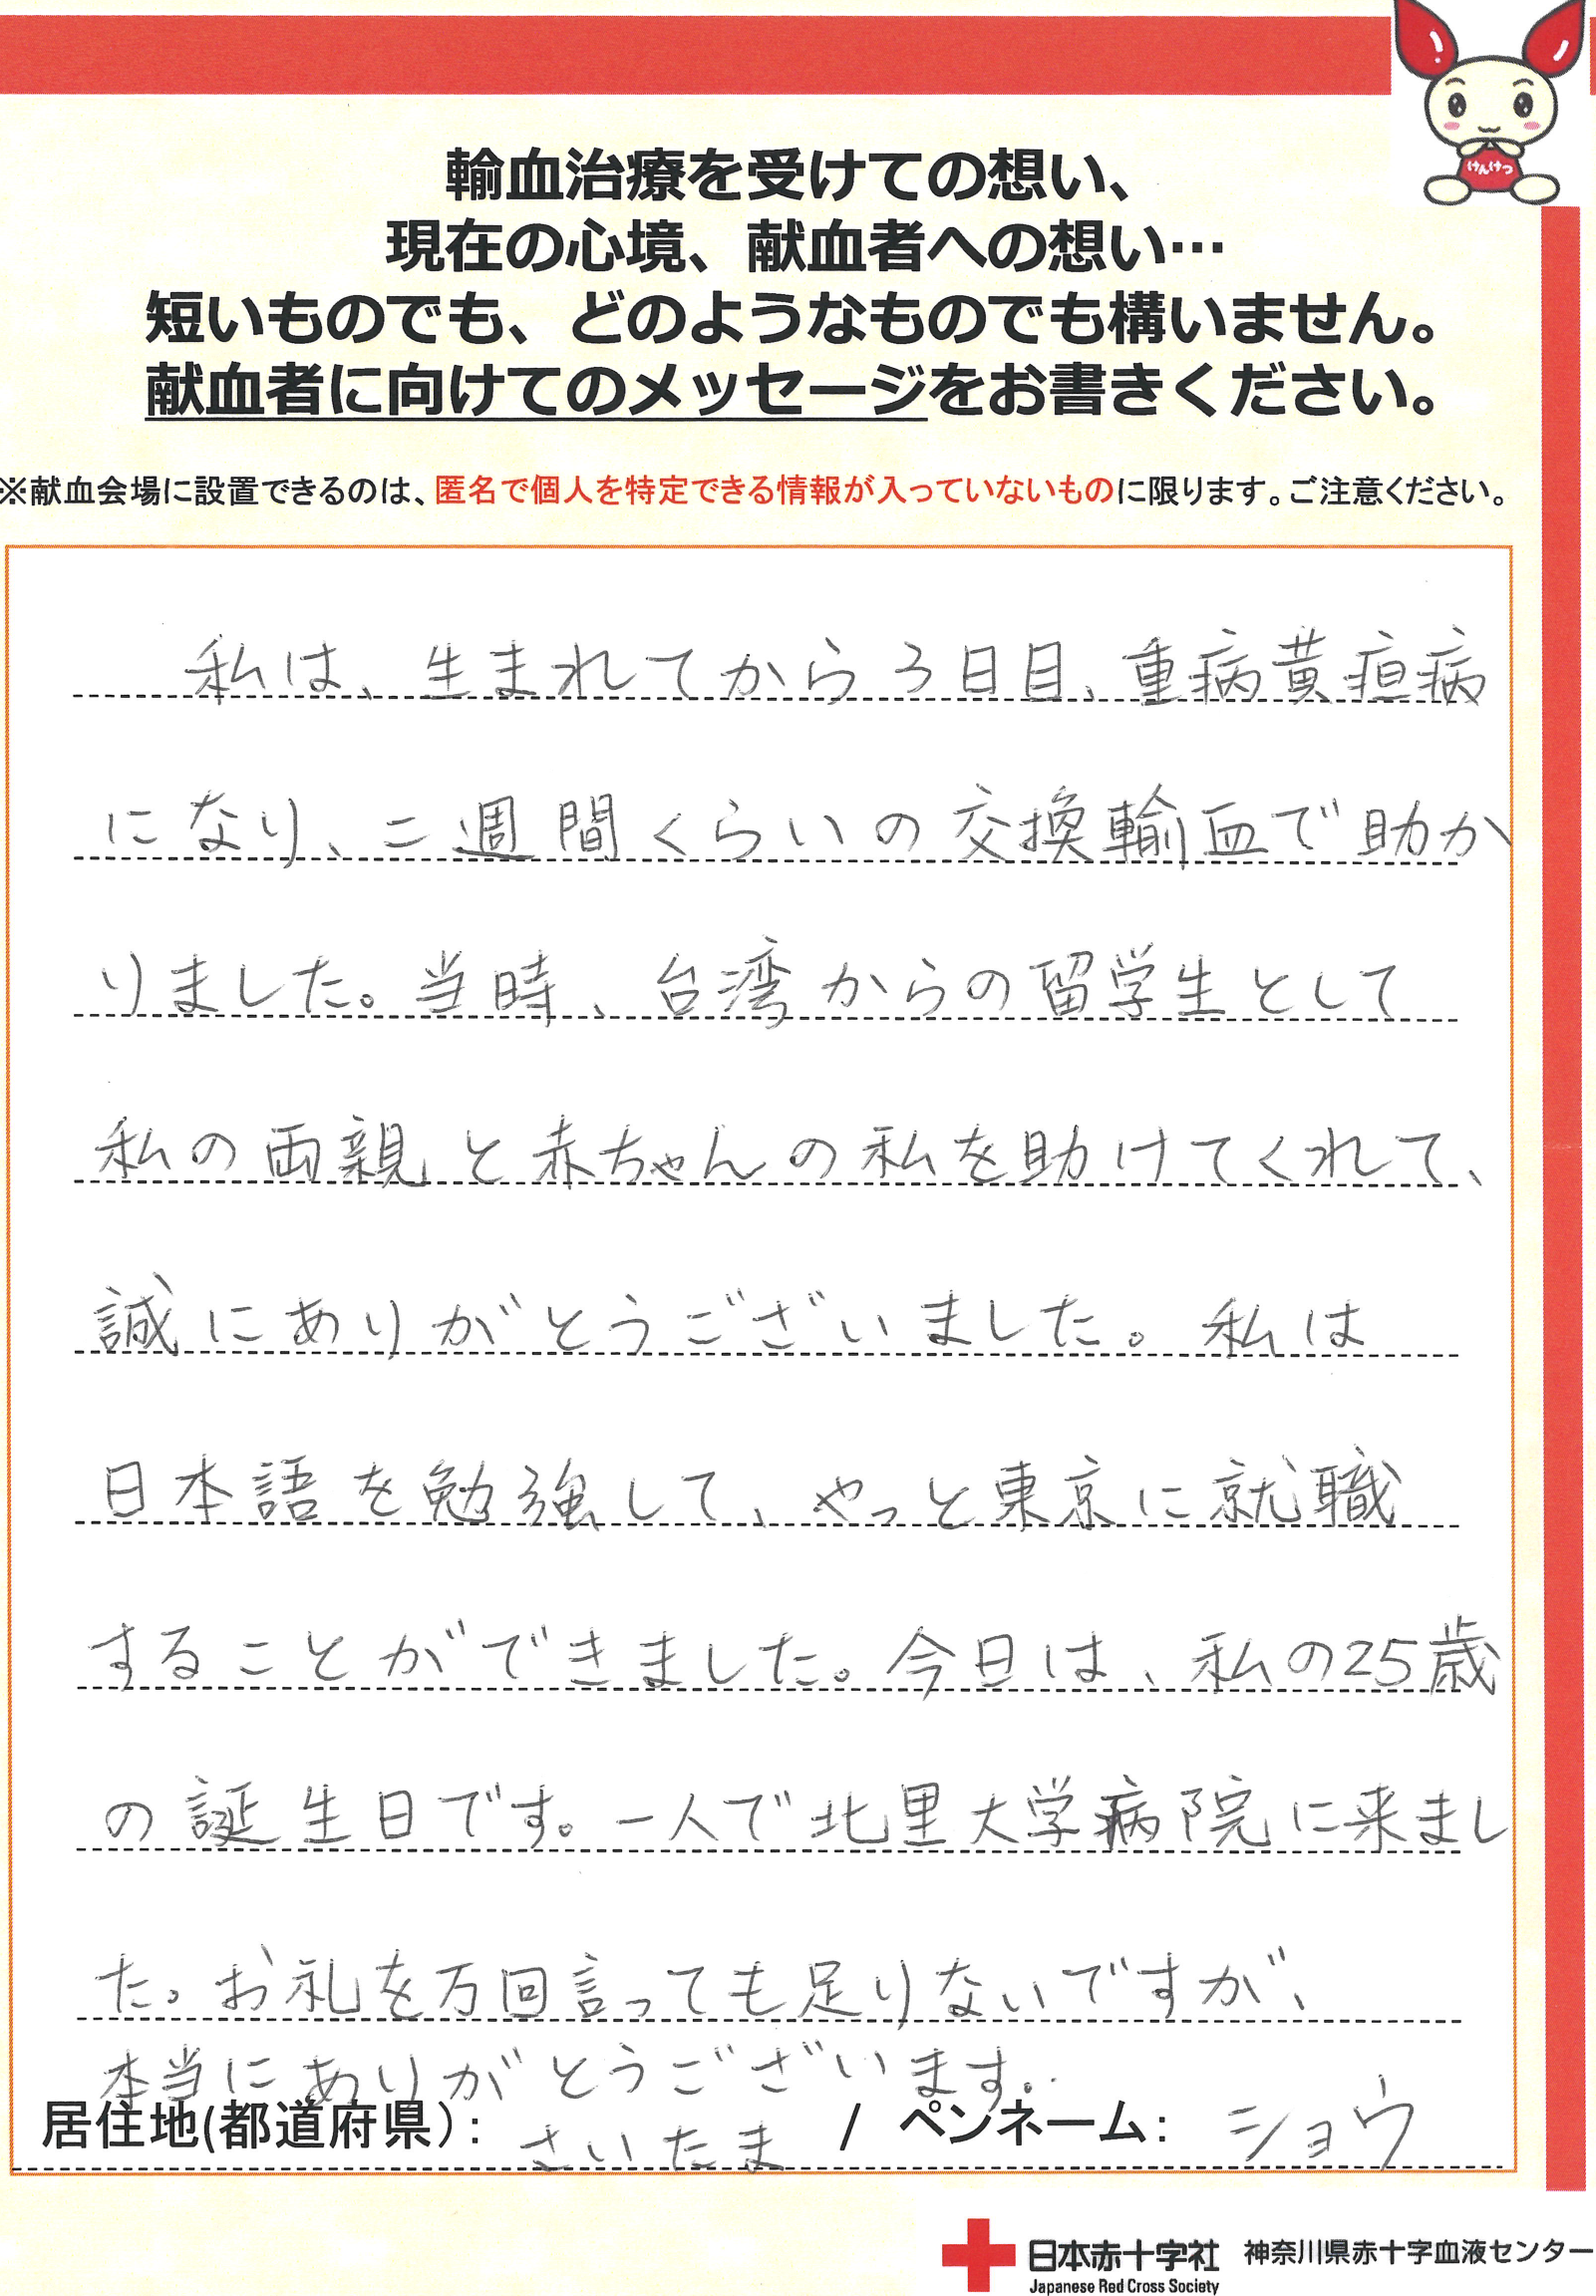 けんけつ
輸血治療を受けての想い、
現在の心境、献血者への想い…
短いものでも、どのようなものでも構いません。
献血者に向けてのメッセージをお書きください。
※献血会場に設置できるのは、匿名で個人を特定できる情報が入っていないものに限ります。ご注意ください。
私は、生まれてから3日目、重病黄疸病
になり、二週間くらいの交換輸血で助か
りました。当時、台湾からの留学生として
私の両親と赤ちゃんの私を助けてくれて、
誠にありがとうございました。私は
日本語を勉強して、やっと東京に就職
することができました。今日は、私の25歳
の誕生日です。一人で北里大学病院に来まし
た。お礼を万回言っても足りないですが、
本当にありがとうございます。
居住地(都道府県): さいたま / ペンネーム: ショウ
日本赤十字社 神奈川県赤十字血液センター
Japanese Red Cross Society